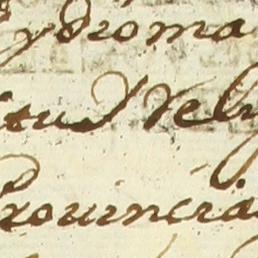 ydioma
itud Reli
Prouincia